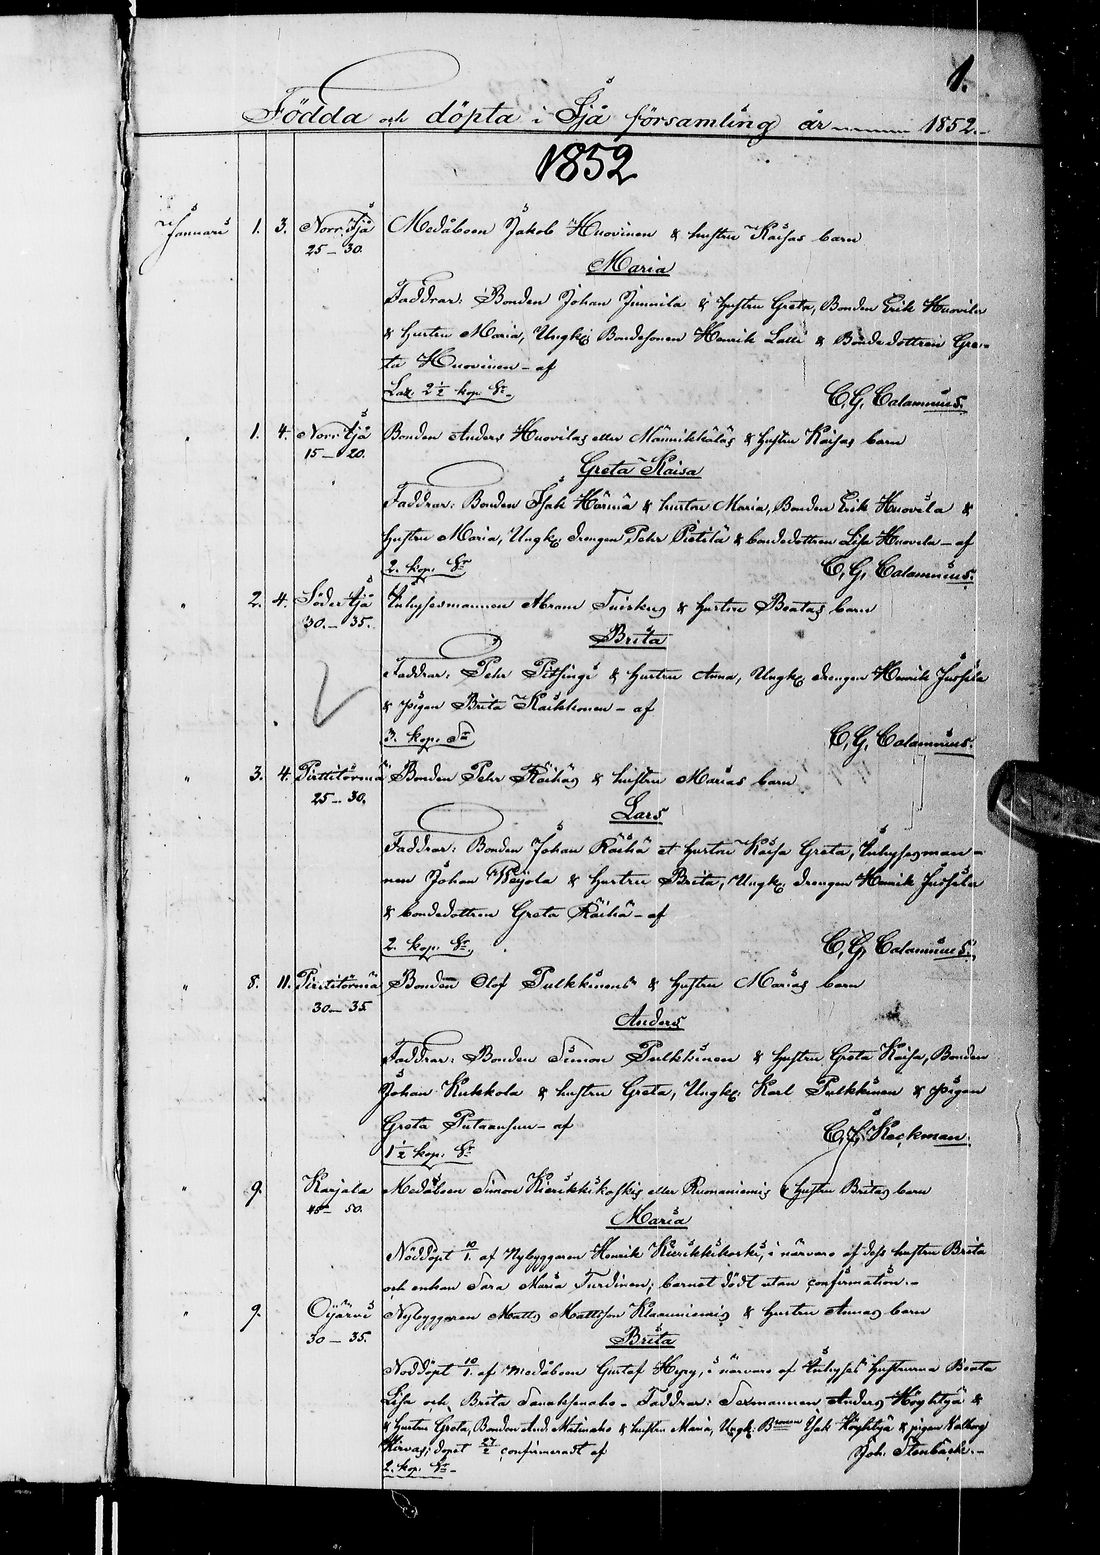 1.
Födda och döpta i Ijå församling år 1852.
1852
Januari 1. 3. Norr Ijå Medåboen Jakob Huovinen & hustru Kaisas barn
25-30.
Maria
Faddrar: Bonden Johan Junnila & hustru Greta, Bonden Erik Huovila
& hustru Maria, Ungk. Bondesonen Henrik Lalli & Bondedottren Gre-
ta Huovinen - af
2 ½ kop. Sr C. G. Calamnius.
" 1. 4. Norr Ijå Bonden Anders Huovilas eller Männikkäläs & hustru Kaisas barn
15-20.
Greta Kaisa
Faddrar: Bonden Isak Härmä & hustru Maria, Bonden Erik Huovila &
hustru Maria, Ungk. drengen Petr Pietilä & bondedottren Lisa Huovila - af
2. kop. Sr C. G. Calamnius.
" 2. 4. Söder Ijå Inhysesmannen Abram Tuiskus & hustru Beatas barn
30.-35.
Brita
Faddrar: Pehr & hustru Anna, Ungk. drengen Henrik Jussila
& pigan Brita Kaikkonen - af
3. kop. C. G. Calamnius.
" 3. 4. Pirttitörmä Bonden Pehr Räihäs & hustru Marias barn
25-30.
Lars
Faddrar: Bonden Johan Räihä et hustru Kaisa Greta, Inhysesman-
nen Johan Weijola & hustru Brita, Ungk. drengen Henrik Jussila
& bondedottren Greta Räihä - af
2. kop. Sr. C. G. Calamnius.
" 8. 11. Pirttitörmä Bonden Olof Pulkkinens & hustru Marias barn
30-35.
Anders
Faddrar: Bonden Simon Pulkkinen & hustru Greta Kaisa, Bonden
Johan Kukkola & hustru Greta, Ungk. Karl Pulkkinen & pigan
Greta - af C. J. Keckman.
1 ½ kop. Sr
" 9. Karjala Medåboen Simon Kierikkikoskis eller Ruonaniemis & hustru Britas barn
45-50.
Maria
Nöddöpt 10/1. af Nybyggaren Henrik Kierikkikoski, i närvaro af dess hustru Brita
och enkan Sara Maria Turtinen; barnet dödt utan confirmation.-
" 9. Oijärvi Nybyggaren Matts Mattsson Klaaniemis & hustru Annas barn
30-35.
Brita
Nöddöpt 10/1. af Medåboen Gustaf Hyry, i närvaro af Inhyses hustrurna Beata
Lisa och Brita - Faddrar: Sexmannen Anders Höyhtyä &
& hustru Greta, Bonden And. Matinaho & hustru Maria, Ungk. Isak Höyhtyä & pigan Walborg
Hirvas; döpet 27/2 confirmeradt af Joh. Stenbäck.-
2. kop. Sr-